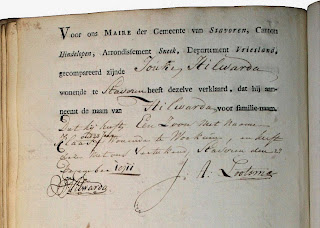 Voor ons MAIRE der Gemeente van Stavoren, Canton
Hindelopen, Arrondissement Sneek, Departement Vriesland,
gecompareerd zijnde Hilwarda
wonende te Stavoren heeft dezelve verklaard, dat hij aan-
neemt de naam van Hilwarda voor familie-naam.
Dat hij heeft Een Zoon Met Name
Klaas, wonende te Workum, en heeft
deze Met ons Vertekend, Stavoren den
December 1811
Hilwarda